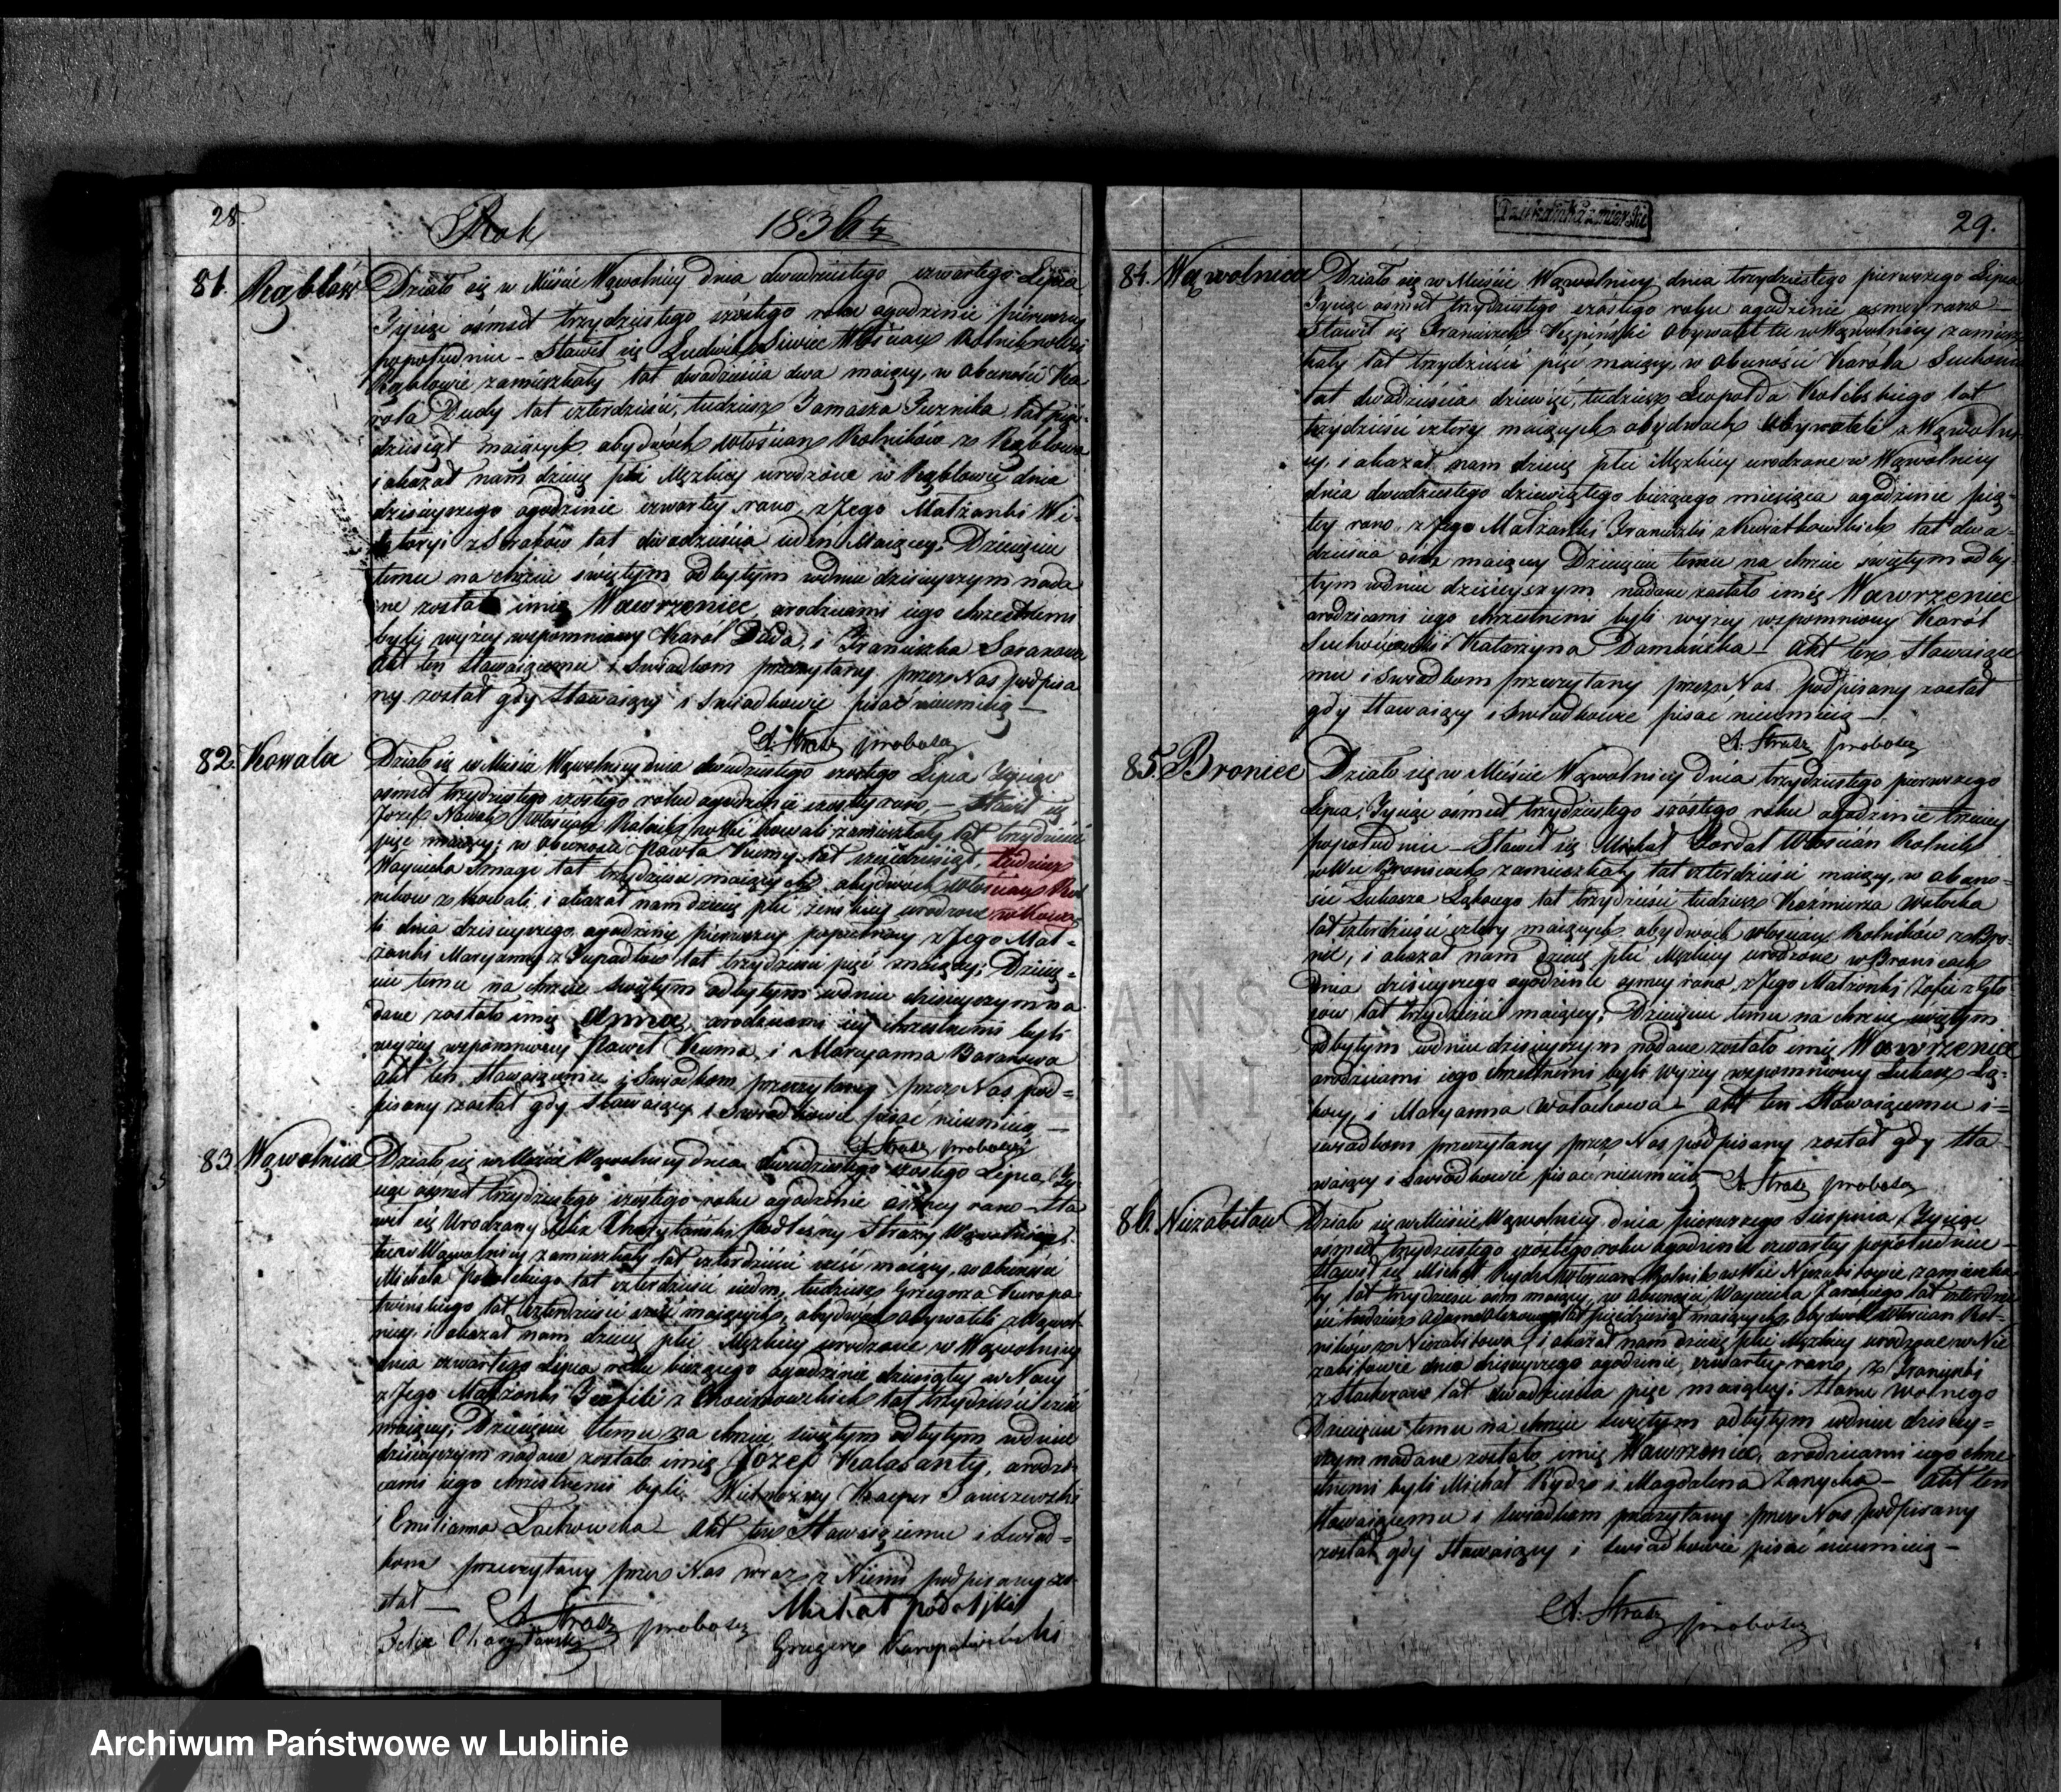 28.
Rok 1836
81. Rąblów
Działo się w Mieście Wąwolnicy dnia dwudziestego czwartego Lipca
Tysiąc ośmset trzydziestego szóstego roku o godzinie pierwszej
popołudniu – Stawił się Ludwik Siwiec Włościan Rolnik
Rąblowie zamieszkały lat dwadzieścia dwa maiący, w obecności Ka
rola Dudy lat czterdzieści, tudzież Tomasza lat pięć
dziesiąt maiących obydwóch włościan Rolników z Rąblowa
i okazał nam dziecię płci Męzkiey urodzone w Rąblowie dnia
dzisieyszego o godzinie czwartey rano, z Jego Małżonki Wi-
ktoryi lat dwadzieścia ieden Maiącey. Dziecięciu
temu na chrzcie swiętym odbytym w dniu dzisieyszym nada
ne zostało imię Wawrzeniec, a rodzicami iego chrzestnemi
byli wyżey wspomniony Karól Duda, i Franciszka
Akt ten stawaiącemu i Swiadkom przeczytany przez Nas podpisa
ny został gdy Stawaiący i Swiadkowie pisać nieumieią –
A. Strasz proboszcz
82. Kowala
Działo się w Mieście Wąwolnicy dnia dwudziestego szóstego Lipca Tysiąc
ośmset trzydziestego szóstego roku o godzinie szóstey rano – Stawił się
Józef Nowak Włościan Rolnik w Wsi Kowali zamieszkały lat trzydzieści
pięć maiący; w obecności Pawła Kumy lat sześćdziesiąt, tudzież
Woyciecha lat trzydzieści maiących obydwóch włościan Rol
ników z Kowali, i okazał nam dziecię płci żeńskiey urodzone w Kowa-
li dnia dzisieyszego o godzinie pierwszey z Jego Mał-
żonki Maryanny z lat trzydzieści pięć maiącey; Dziecię-
ciu temu na chrzcie swiętym odbytym w dniu dzisieyszym na
dane zostało imię Anna, a rodzicami iey chrzestnemi byli
wyżey wspomniony Paweł Kuma, i Maryanna Baranowa
Akt ten Stawaiącemu i Swiadkom przeczytany przez Nas pod-
pisany został gdy Stawaiący i Swiadkowie pisać nieumieią –
A. Strasz proboszcz
83. Wąwolnica
Działo się w Mieście Wąwolnicy dnia dwudziestego szóstego Lipca Ty-
siąc ośmset trzydziestego szóstego roku o godzinie osmey rano – Sta
wił się Urodzony Felix Podleśny Straży
tu w Wąwolnicy zamieszkały lat czterdzieści sześć maiący, w obecności
Michała Podolskiego lat czterdzieści siedm, tudzież Grzegorza Kuropa-
twinskiego lat czterdzieści sześć maiących, obydwóch obywateli z Wąwol-
nicy, i okazał nam dziecię płci Męzkiey urodzone w Wąwolnicy
dnia czwartego Lipca roku bieżącego o godzinie dziesiątey w Nocy
z Jego Małżonki Teofili z lat trzydzieści sześć
maiącey; Dziecięciu temu na chrzcie swiętym odbytym w dniu
dzisieyszym nadane zostało imię Józef Kalasanty, a rodzi-
cami iego chrzestnemi byli Wielmożny Kacper Januszewski
i Emilianna Akt ten Stawaiącemu i Swiad-
kom przeczytany przez Nas wraz z Niemi podpisany zo-
stał –
A. Strasz proboszcz
Michał Podolski
Felix
Grzegorz Kuropatwiński
Dziekan Kazimierski
29.
84. Wąwolnica
Działo się w Mieście Wąwolnicy dnia trzydziestego pierwszego Lipca
Tysiąc ośmset trzydziestego szóstego roku o godzinie osmey rano –
Stawił się Franciszek Obywatel tu w Wąwolnicy zamiesz
kały lat trzydzieści pięć maiący, w obecności Karóla
lat dwadzieścia dziewięć, tudzież Leopolda lat
trzydzieści cztery maiących obydwóch obywateli z Wąwolni
cy, i okazał nam dziecię płci Męzkiey urodzone w Wąwolnicy
dnia dwudziestego dziewiątego bieżącego miesiąca o godzinie pią-
tey rano, z Jego Małżonki Franciszki z Kwiatkowskich lat dwa-
dzieścia maiącey Dziecięciu temu na chrzcie swiętym odby-
tym w dniu dzisieyszym nadane zostało imię Wawrzeniec
a rodzicami iego chrzestnemi byli wyżey wspomniony Karól
i Katarzyna Domańska – Akt ten Stawaiące
mu i Swiadkom przeczytany przez Nas podpisany został
gdy Stawaiący i Swiadkowie pisać nieumieią –
A. Strasz proboszcz
85. Broniec
Działo się w Mieście Wąwolnicy dnia trzydziestego pierwszego
Lipca, Tysiąc ośmset trzydziestego szóstego roku o godzinie trzeciey
popołudniu – Stawił się Michał Włościan Rolnik
w Wsi Bronicach zamieszkały lat czterdzieści maiący, w obecno-
ści Łukasza Łąkoego lat trzydzieści tudzież Kaźmierza Wołocha
lat czterdzieści cztery maiących obydwóch włościan Rolników z Bro-
nic, i okazał nam dziecię płci Męzkiey urodzone w Bronicach
dnia dzisieyszego o godzinie osmey rano, z Jego Małżonki Zofii z
lat trzydzieści maiącey; Dziecięciu temu na chrzcie swiętym
odbytym w dniu dzisieyszym nadane zostało imię Wawrzeniec
a rodzicami iego chrzestnemi byli wyżey wspomniony Łukasz Łą-
koy, i Maryanna Wołochowa – Akt ten Stawaiącemu i –
swiadkom przeczytany przez Nas podpisany został gdy Sta-
waiący i Swiadkowie pisać nieumieią
A. Strasz proboszcz
86. Niezabitów
Działo się w Mieście Wąwolnicy dnia pierwszego Sierpnia Tysiąc
ośmset trzydziestego szóstego roku o godzinie czwartey popołudniu –
Stawił się Michał Włościan Rolnik w Wsi Niezabitowie zamieszka
ły lat trzydzieści osm maiący, w obecności Woyciecha lat czterdzie
ści tudzież Adama lat pięćdziesiąt maiących obydwóch włościan Rol-
ników z Niezabitowa, i okazał nam dziecię płci Męzkiey urodzone w Nie
zabitowie dnia dzisieyszego o godzinie czwartey rano, z Franciszki
lat dwadzieścia pięć maiącey; stanu wolnego
Dziecięciu temu na chrzcie swiętym odbytym w dniu dzisiey-
szym nadane zostało imię Wawrzeniec, a rodzicami iego chrze
stnemi byli Michał i Magdalena – Akt ten
Stawaiącemu i Swiadkom przeczytany przez Nas podpisany
został, gdy Stawaiący i Swiadkowie pisać nieumieią –
A. Strasz proboszcz
Archiwum Państwowe w Lublinie